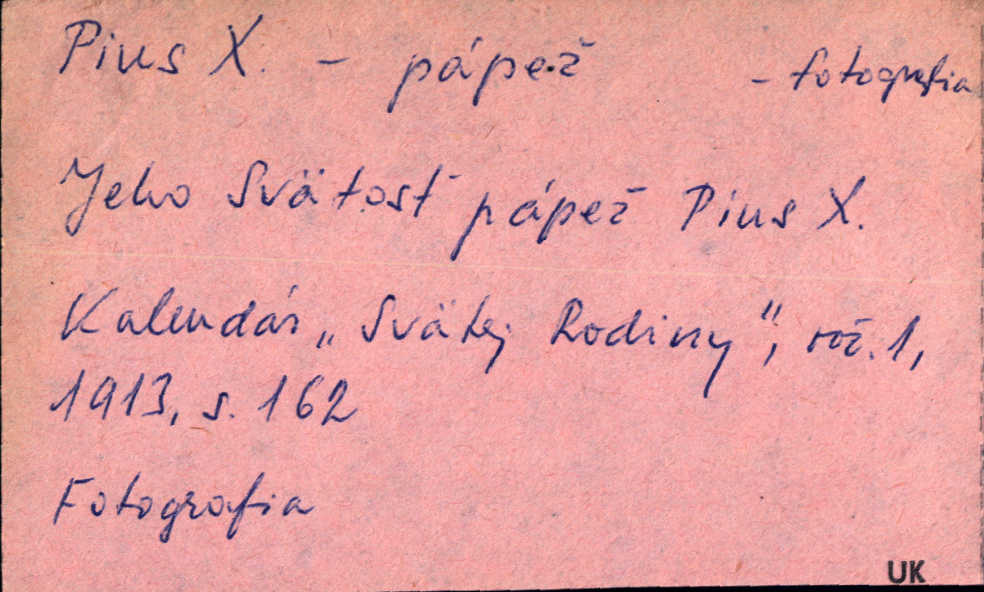 Pius X. - pápež - fotografia
Jeho Svätosť pápež Pius X.
Kalendár „Svätej Rodiny", roč. 1,
1913, s. 162
Fotografia
UK